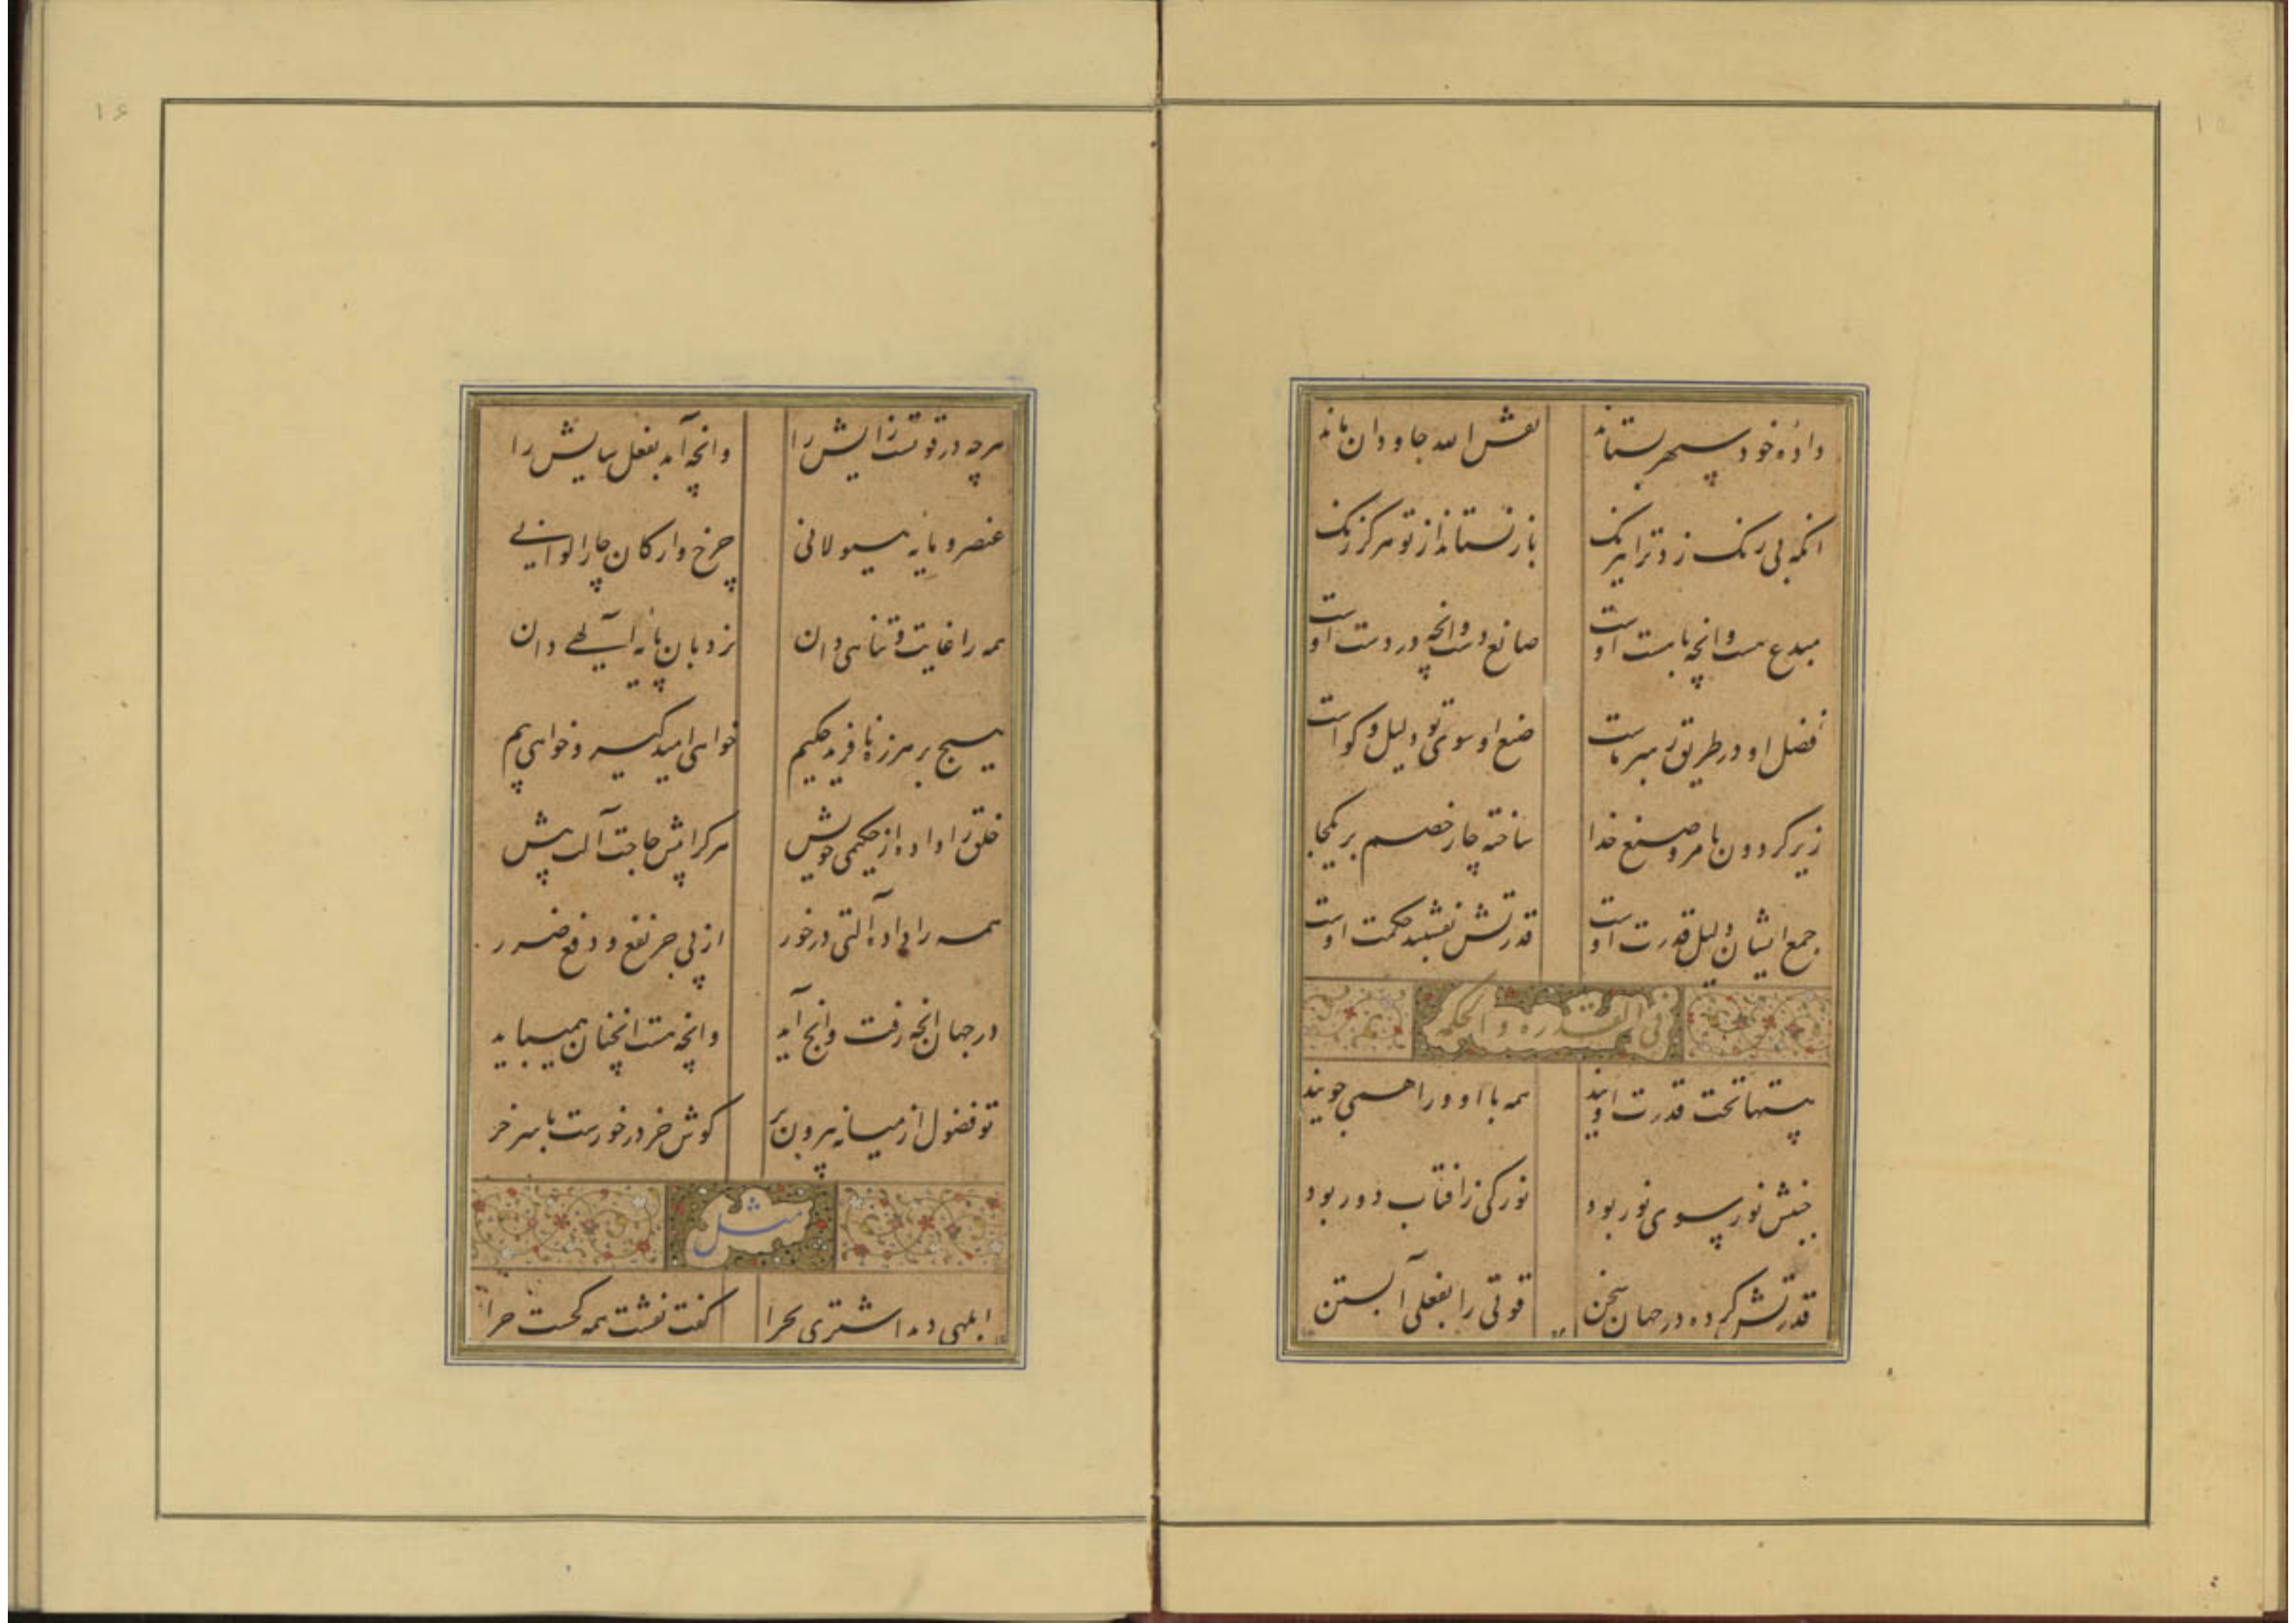 داده خود سپهر بستاند
نقش الله جاودان ماند
آنکه بی رنک زد ترا نیرنک
باز نستاند از تو هرکز رنک
مبدع هست وانچه ناهست اوست
صانع دست وانچه در دست اوست
فضل او در طریق رهبر ماست
صنع او سوی تو دلیل و کواست
زیر کردون بامر و صنع خدا
ساخته چار خصم بر یکجا
جمع ایشان دلیل قدرت اوست
قدرتش نقشبند حکمت اوست
فی القدره و الحکمه
پستها تحت قدرت اویند
همه با او و او را همی جویند
جنبش نور سوی نور بود
نور کی ز افتاب دور بود
قدرتش کرده در جهان سخن
قوتی را بفعلی آبستن
هرچه در قوتست زایش را
وانچه آمد بفعل سایش را
عنصر و مایه هیولانی
چرخ و ارکان چار الوانی
همه را غایت و تناهی دان
نردبان پایه الهی دان
هیچ بر هرزه نافرید حکیم
خواهی امید کیر و خواهی بیم
خلق را داده از حکیمی خویش
هرکرا بیش حاجت آلت بیش
همه را داده آلتی درخور
از پی جر نفع و دفع ضرر
در جهان انچه رفت وانچ آید
وانچه هست انچنان همیباید
تو فضول از میانه بیرون بر
کوش خر درخورست با سر خر
مثل
ابلهی دید اشتری بچرا
کفت نقشت همه کجست چرا
۱۵
۱۶